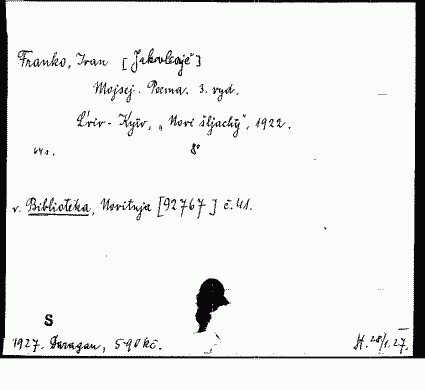 Franko, Ivan [Jakovlevič]
Mojsej. Poema. 3. vyd.
L'viv - Kyïv, „Novi šljachy", 1922.
8°
v. Biblioteka, Novitnja [92767] č. 41.
S
1927. Daragan, 5·90 Kč.
28/1.27.